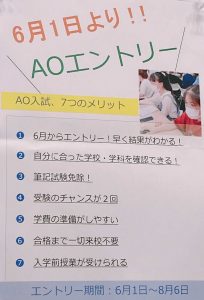 6月1日より!!
AOエントリー
AO入試、7つのメリット
1 6月からエントリー!早く結果がわかる!
2 自分に合った学校・学科を確認できる!
3 筆記試験免除!
4 受験のチャンスが2回
5 学費の準備がしやすい
6 合格まで一切来校不要
7 入学前授業が受けられる
エントリー期間:6月1日~8月6日